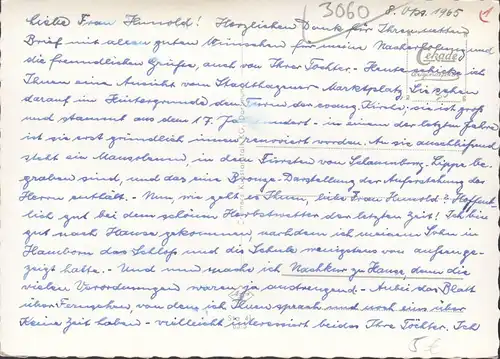 3060 8. Okt. 1965
Liebe Frau Hunold! Herzlichen Dank für Ihren netten
Brief mit allen guten Wünschen für meine Nacherholung und
die freundlichen Grüße, auch von Ihrer Tochter. - Heute schicke ich
Ihnen eine Ansicht vom Stadthagener Marktplatz. Sie sehen
darauf im Hintergrunde den Turm der evang. Kirche; sie ist groß
und stammt aus dem 17. Jahrhundert - in einem der letzten Jahre
ist sie erst gründlich innen renoviert worden. An sie anschließend
steht ein Mausoleum, in dem Fürsten von Schaumburg-Lippe be-
graben sind, und das eine Bronze-Darstellung der Auferstehung des
Herrn enthält. - Nun, wie geht es Ihnen, liebe Frau Hunold? Hoffent-
lich gut bei dem schönen Herbstwetter der letzten Zeit! Ich bin
gut nach Hause gekommen, nachdem ich meinem Sohn in
Hamborn das Schloß und die Schule wenigstens von außen ge-
zeigt hatte. - Und nun mache ich Nachkur zu Hause, denn die
vielen Verordnungen waren ja anstrengend. - Anbei das Blatt
über Fernsehen, von dem ich Ihnen sprach und noch eins über
Keine Zeit haben - vielleicht interessiert beides Ihre Töchter. Ich
5 €